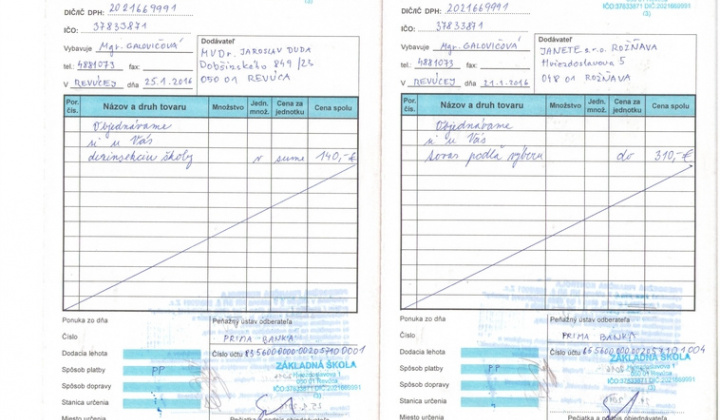 DIČ/IČ DPH: 2021669991
IČO: 37833871
Vybavuje Mgr. GALOVIČOVÁ
tel.: 4881073 fax:
V REVÚCEJ dňa 25.1.2016
Dodávateľ
MVDr. JAROSLAV DUDA
Dobšinského 849/23
050 01 REVÚCA
Por. čís.
Názov a druh tovaru
Množstvo
Jedn. množ.
Cena za jednotku
Cena spolu
Objednávame
u Vás
dezinsekciu školy v sume 140,-€
Ponuka zo dňa
Číslo
Dodacia lehota
Spôsob platby PP
Spôsob dopravy
Stanica určenia
Miesto určenia
Peňažný ústav odberateľa
PRIMA BANKA
Číslo účtu
ZÁKLADNÁ ŠKOLA
050 01 Revúca
IČO:37833871 DIČ:2021669991
(3)
Pečiatka a podpis objednávateľa
IČO:37833871 DIČ:2021669991
(3)
DIČ/IČ DPH: 2021669991
IČO: 37833871
Vybavuje Mgr. GALOVIČOVÁ
tel.: 4881073 fax:
V REVÚCEJ dňa 21.1.2016
Dodávateľ
JANETE s.r.o. ROŽŇAVA
Hviezdoslavova 5
048 01 ROŽŇAVA
Por. čís.
Názov a druh tovaru
Množstvo
Jedn. množ.
Cena za jednotku
Cena spolu
Objednávame
u Vás
tovar podľa výberu do 310,-€
Ponuka zo dňa
Číslo
Dodacia lehota
Spôsob platby PP
Spôsob dopravy
Stanica určenia
Miesto určenia
Peňažný ústav odberateľa
PRIMA BANKA
Číslo účtu
ZÁKLADNÁ ŠKOLA
050 01 Revúca
IČO:37833871 DIČ:2021669991
(3)